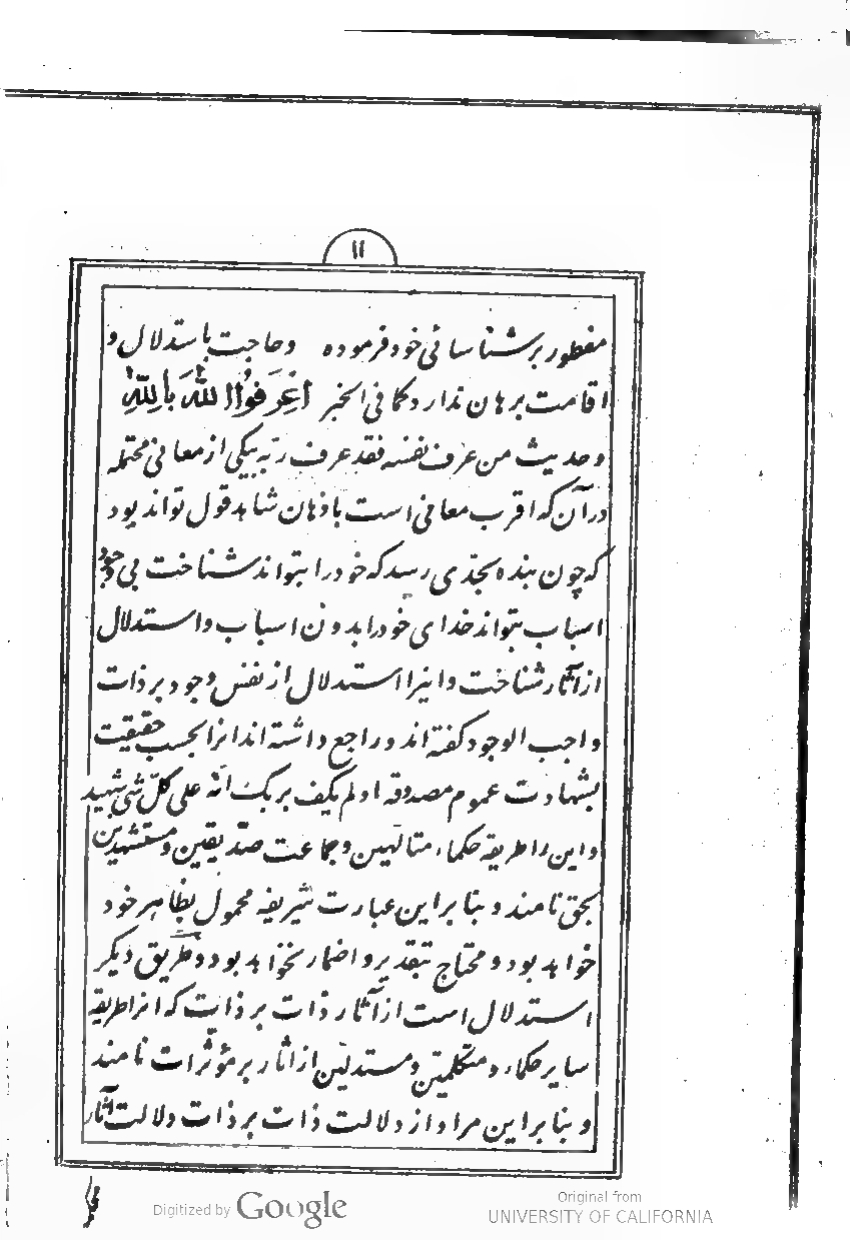 ۱۱
مفطور بر شناسائی خود فرموده وحاجت باستدلال و
اقامت برهان ندارد کما فی الخبر اِعْرِفوُا اللهَ بِاللهِ
وحدیث من عرف نفسه فقد عرف ربّه بیکی از معانی محتمله
در آن که اقرب معانی است باذهان شاهد قول تواند بود
که چون بنده بحدّی رسد که خود را بتواند شناخت بی وجود
اسباب بتواند خدای خود را بدون اسباب واستدلال
از آثار شناخت واینرا استدلال از نفس وجود بر ذات
واجب الوجود گفته اند و راجع داشته اند انرا بحسب حقیقت
بشهادت عموم مصدوقه اولم یکف بربک انّه علی کلّ شیٔ شهید
واین را طریقه حکماء متالهین وجماعت صدّیقین ومستشهدین
بحق نامند و بنا براین عبارت شریفه محمول بظاهر خود
خواهد بود و محتاج بتقدیر و اضمار نخواهد بود و طریق دیگر
استدلال است از آثار ذات بر ذات که انرا طریقه
سایر حکماء و متکلّمین ومستدلّین از اثار بر مؤثرات نامند
و بنا براین مراد از دلالت ذات بر ذات دلالت آثار
Digitized by Google
Original from
UNIVERSITY OF CALIFORNIA